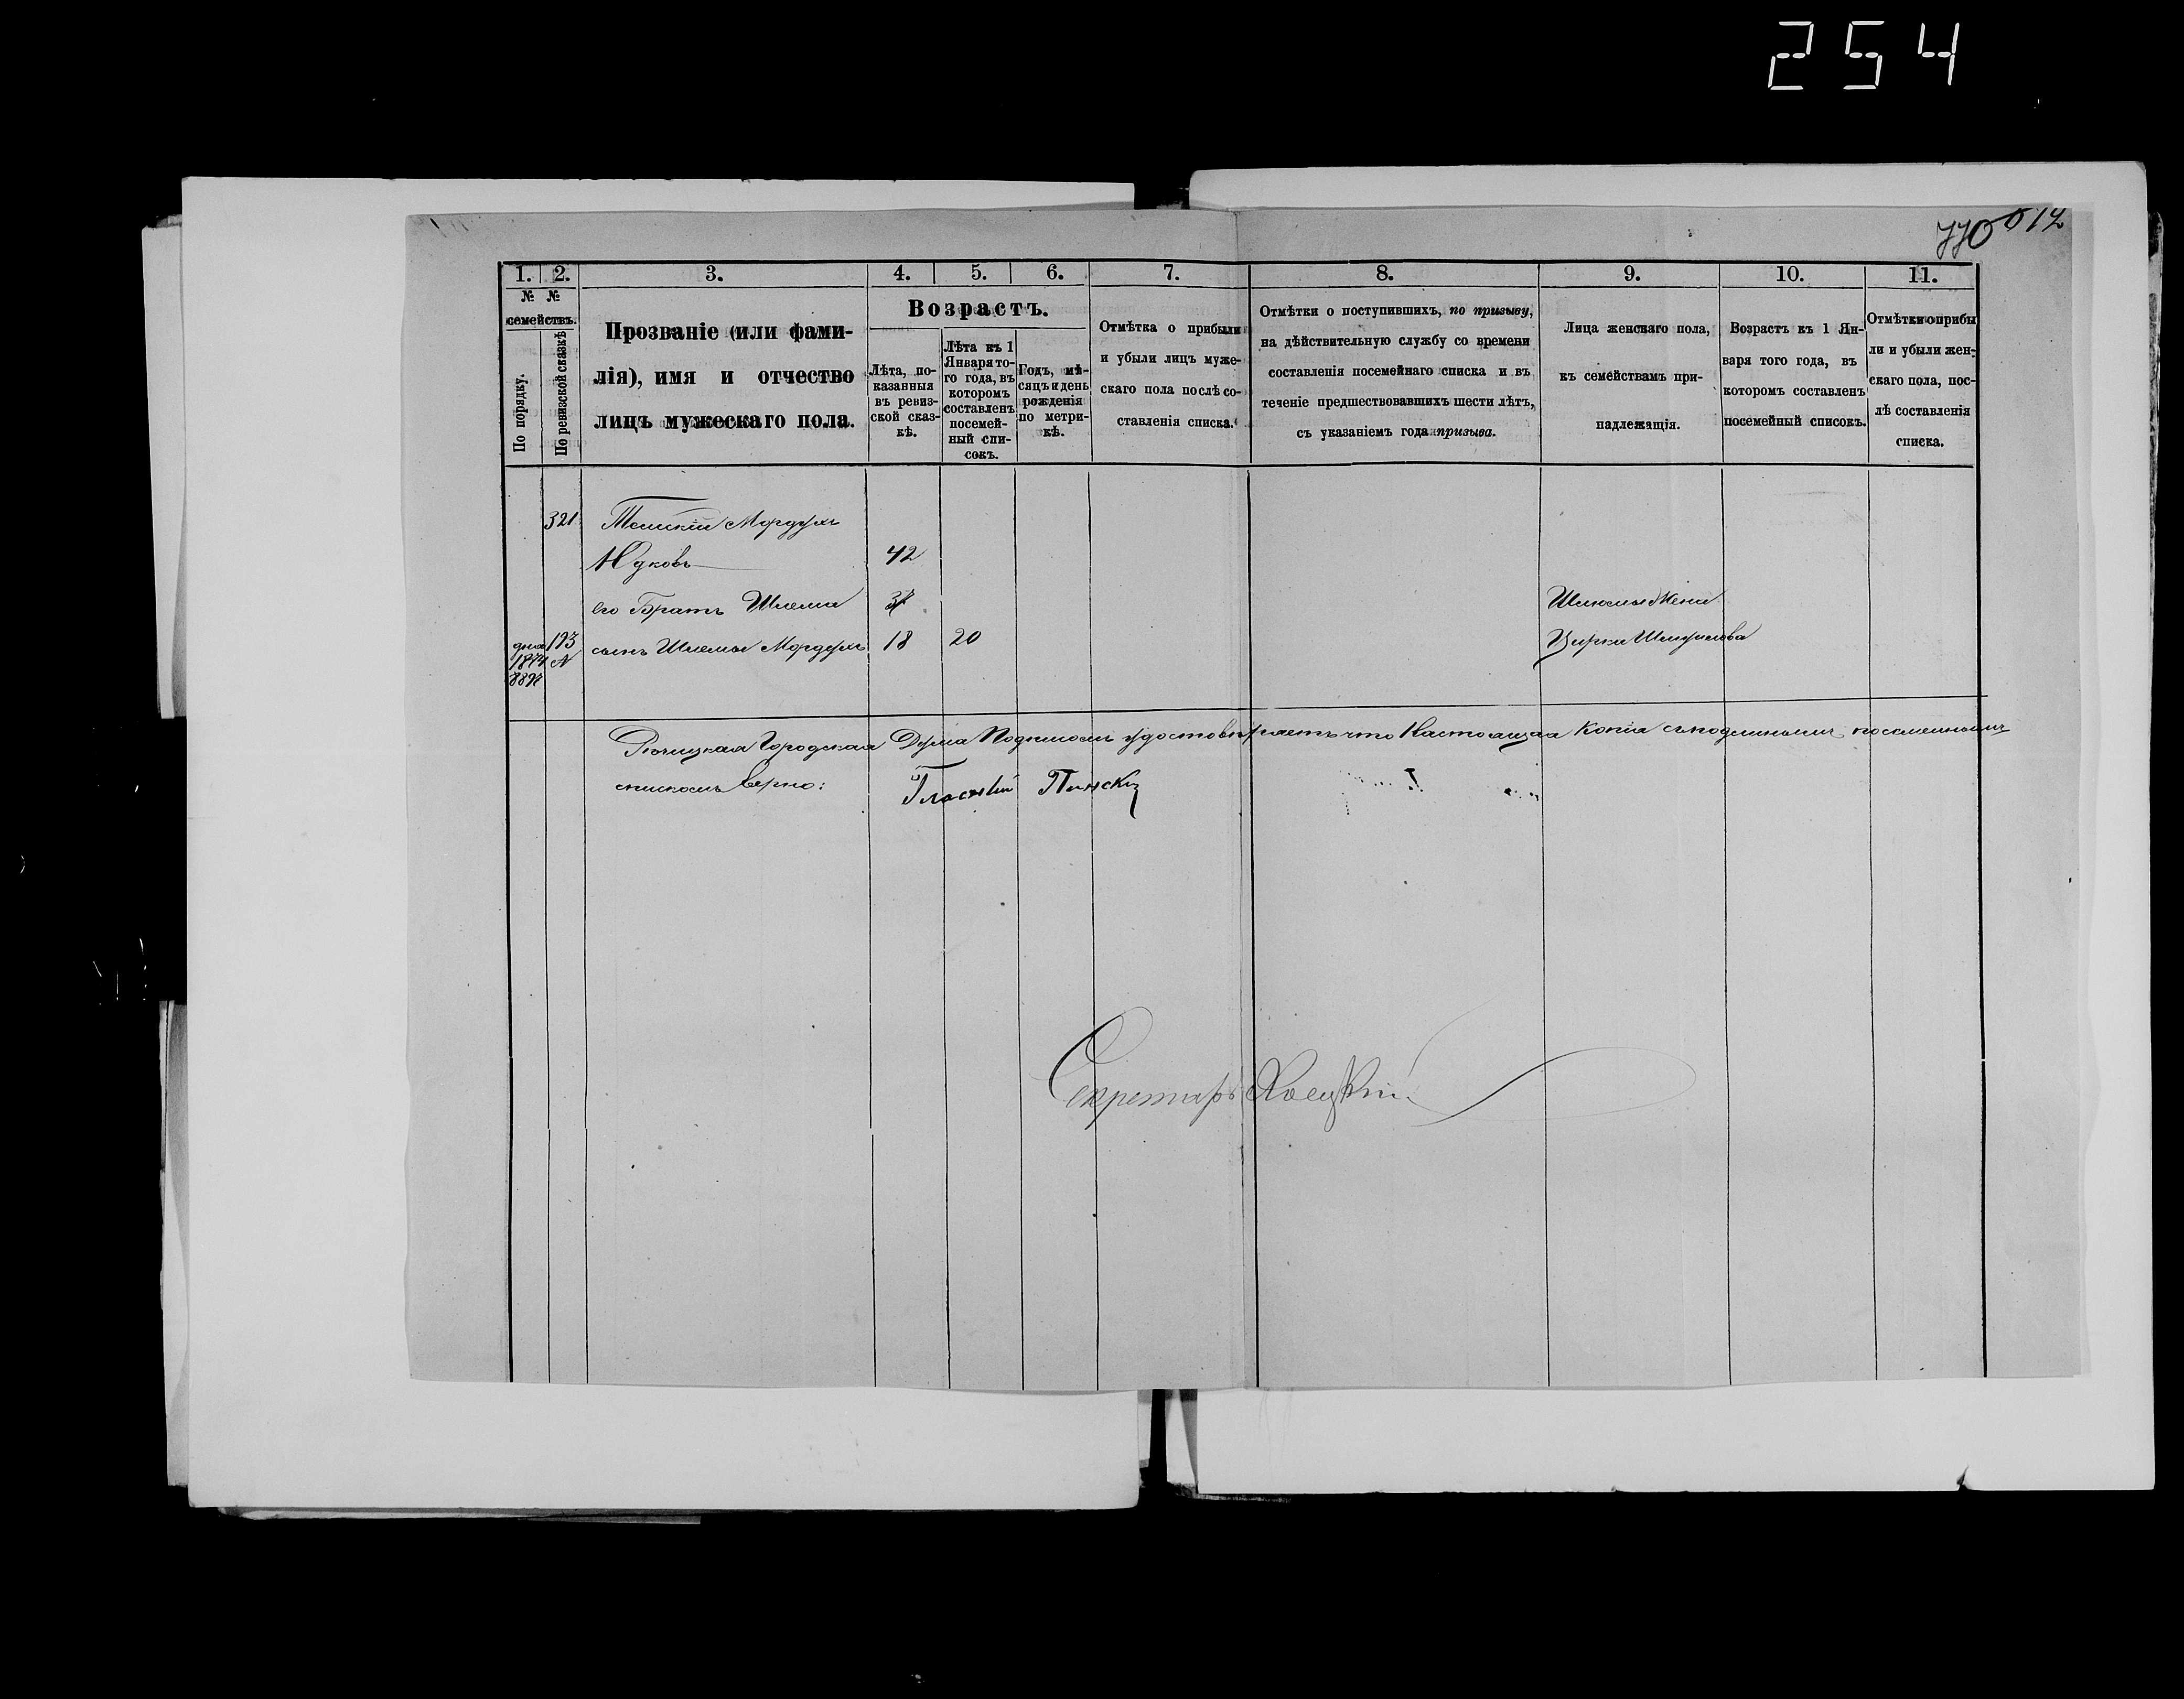 254
770 512
1. 2. 3. 4. 5. 6. 7. 8. 9. 10. 11.
№ № семействъ.
По порядку.
По ревизской сказкѣ
Прозваніе (или фами-
лія), имя и отчество
лицъ мужескаго пола.
Возрастъ.
Лѣта, по-
казанныя
въ ревиз-
ской сказ-
кѣ.
Лѣта къ 1
Января то-
го года, въ
которомъ
составленъ
посемей-
ный спи-
сокъ.
Годъ, мѣ-
сяцъ и день
рожденія
по метри-
кѣ.
Отмѣтка о прибыли
и убыли лицъ муже-
скаго пола послѣ со-
ставленія списка.
Отмѣтки о поступившихъ, по призыву,
на дѣйствительную службу со времени
составленія посемейнаго списка и въ
теченіе предшествовавшихъ шести лѣтъ,
съ указаніемъ года призыва.
Лица женскаго пола,
къ семействамъ при-
надлежащія.
Возрастъ къ 1 Ян-
варя того года, въ
которомъ составленъ
посемейный списокъ.
Отмѣтки о прибы
ли и убыли жен-
скаго пола, пос-
лѣ составленія
списка.
321 Мордухъ
Юдковъ 42
его Братъ Шлема 37 Шлемы Жена
193 сынъ Шлемы Мордухъ 18 20 Цирка
1874 №
Рѣчицкая Городская Дума Подписомъ удостовѣряетъ что Настоящая Копія съ подлиннымъ посемейнымъ
спискомъ вѣрно: Гласный Пински
Секретарь